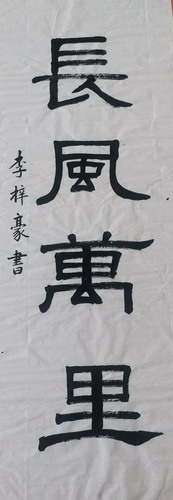 長風萬里
李梓豪書